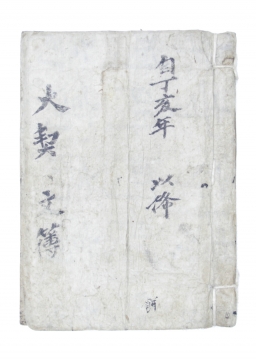 自丁亥年 以條
大契 簿